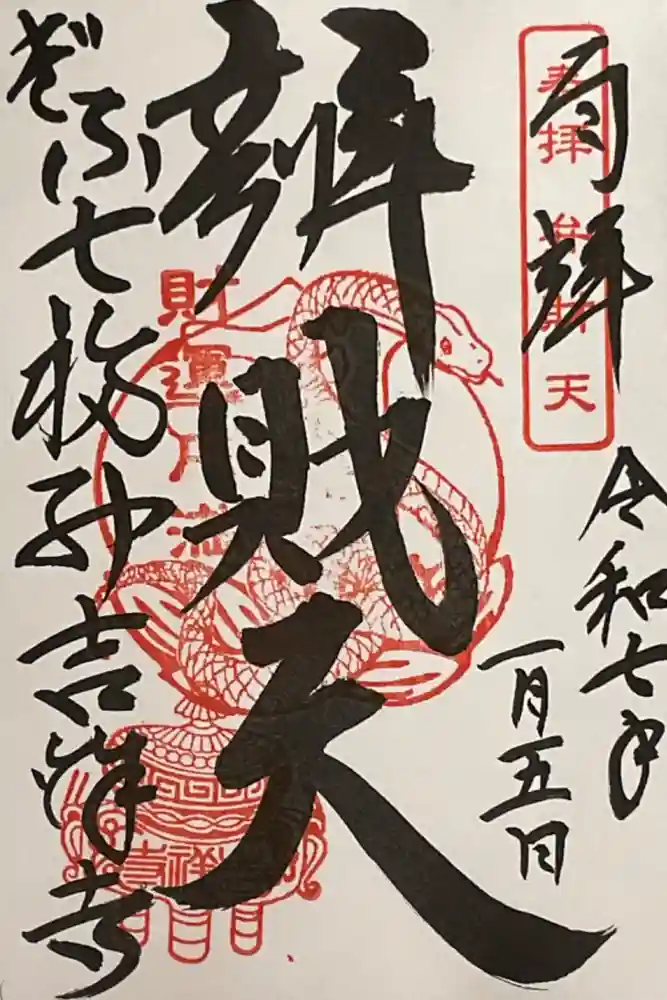 百拝
奉拝 弁財天
令和七年
一月五日
辨財天
財運円満
ぎふ七福神 吉祥寺